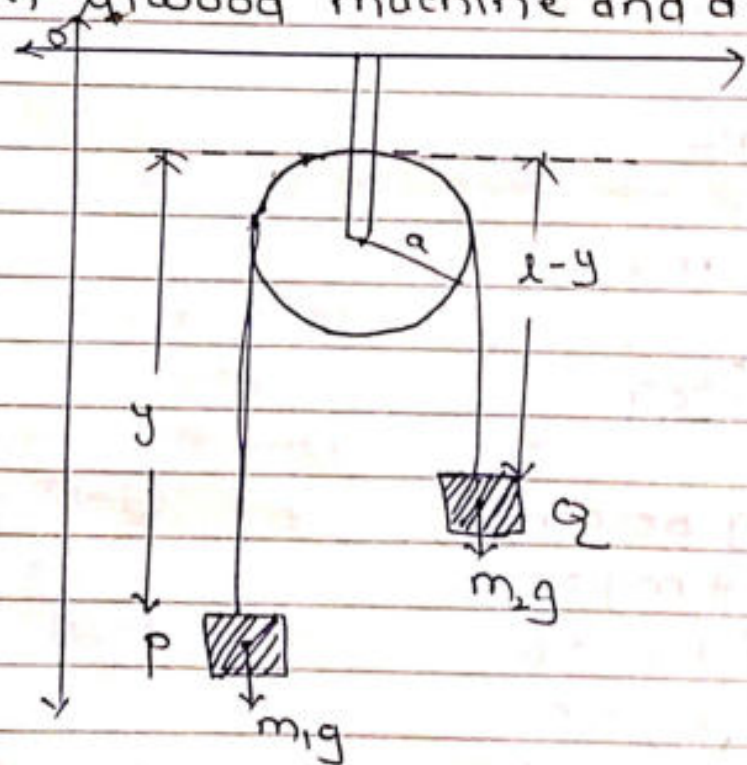 Atwood machine and a
O
a
l-y
y
Q
m₂g
P
m₁g